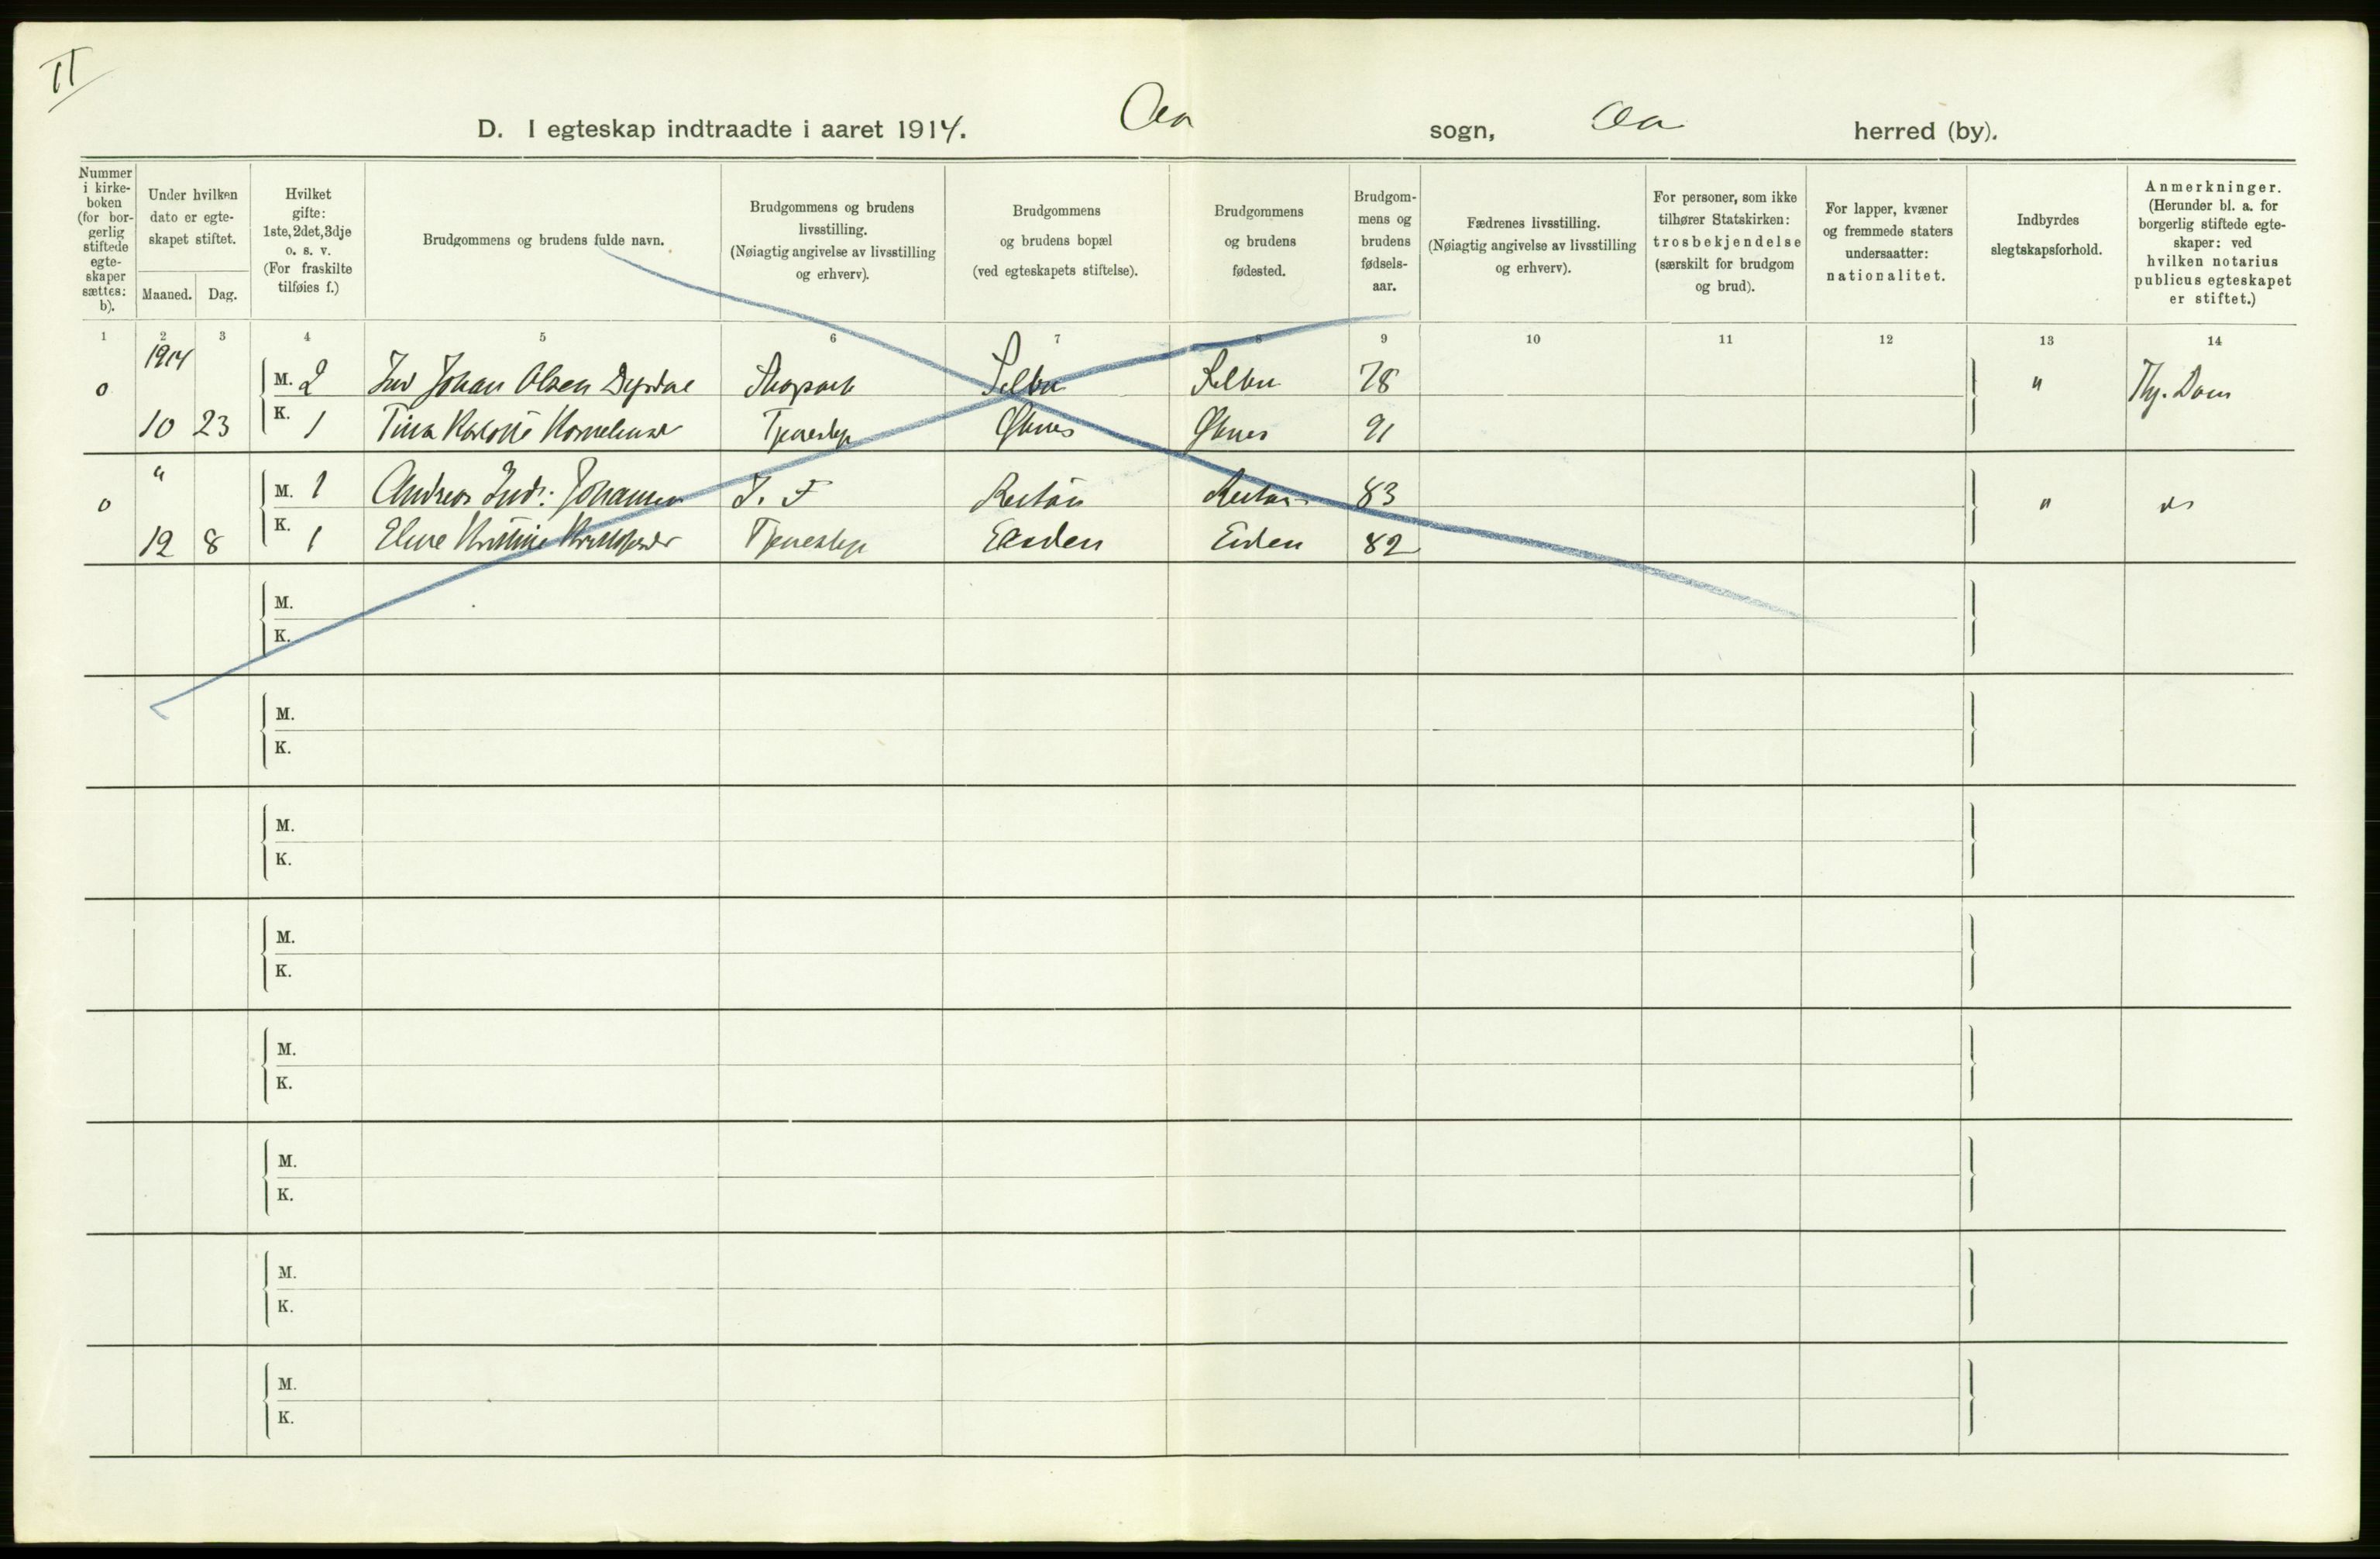 II
D. I egteskap indtraadte i aaret 1914. Aa sogn, Aa herred (by).
Nummer i kirkeboken (for borgerlig stiftede egteskaper sættes: b).
Under hvilken dato er egteskapet stiftet.
Maaned. Dag.
Hvilket gifte: 1ste, 2det, 3dje o. s. v. (For fraskilte tilføies f.)
Brudgommens og brudens fulde navn.
Brudgommens og brudens livsstilling. (Nøiagtig angivelse av livsstilling og erhverv).
Brudgommens og brudens bopæl (ved egteskapets stiftelse).
Brudgommens og brudens fødested.
Brudgommens og brudens fødselsaar.
Fædrenes livsstilling. (Nøiagtig angivelse av livsstilling og erhverv).
For personer, som ikke tilhører Statskirken: trosbekjendelse (særskilt for brudgom og brud).
For lapper, kvæner og fremmede staters undersaatter: nationalitet.
Indbyrdes slegtskapsforhold.
Anmerkninger. (Herunder bl. a. for borgerlig stiftede egteskaper: ved hvilken notarius publicus egteskapet er stiftet.)
1 2 3 4 5 6 7 8 9 10 11 12 13 14
1914
o M. 2 Johan Olsen Selbu Selbu 78 "
10 23 K. 1 Tina 91
"
o M. 1 Andreas Johansen 83 "
12 8 K. 1 Kristine Eiden 82
M.
K.
M.
K.
M.
K.
M.
K.
M.
K.
M.
K.
M.
K.
M.
K.